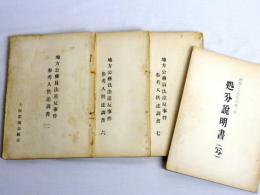 地方公務員法違反事件
参考人供述調書 七
地方公務員法違反事件
参考人供述調書 六
地方公務員法違反事件
参考人供述調書 二
処分説明書(写)